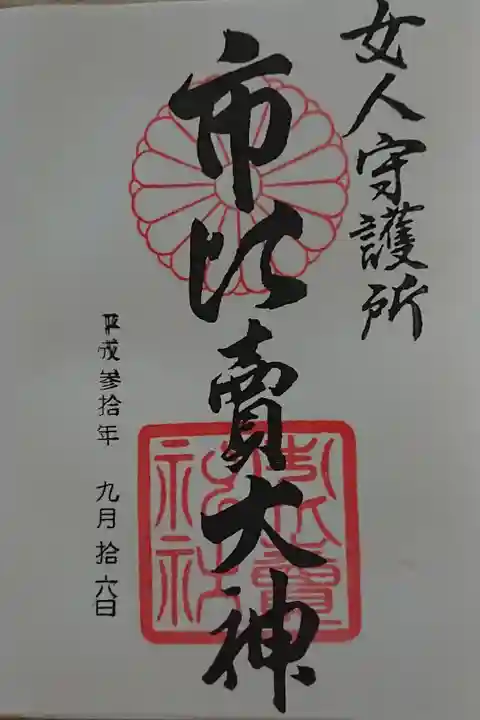 女人守護所
市比賣大神
市比賣神社
平成参拾年 九月拾六日